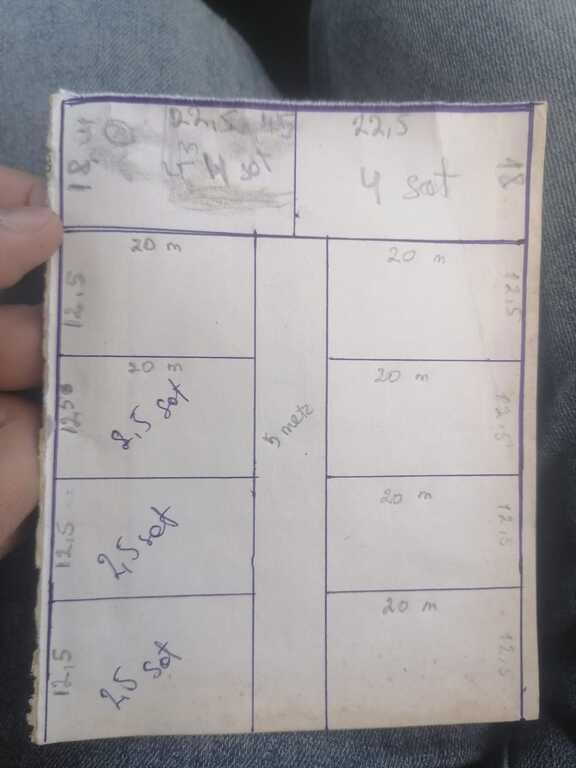 22,5
22,5
18
18
4 sot
4 sot
20 m
20 m
12.5
12,5
20
20 m
2,5 sot
12,5
5 metr
20 m
12,5
2,5 sot
12,5
20 m
12,5
2,5 sot
12,5